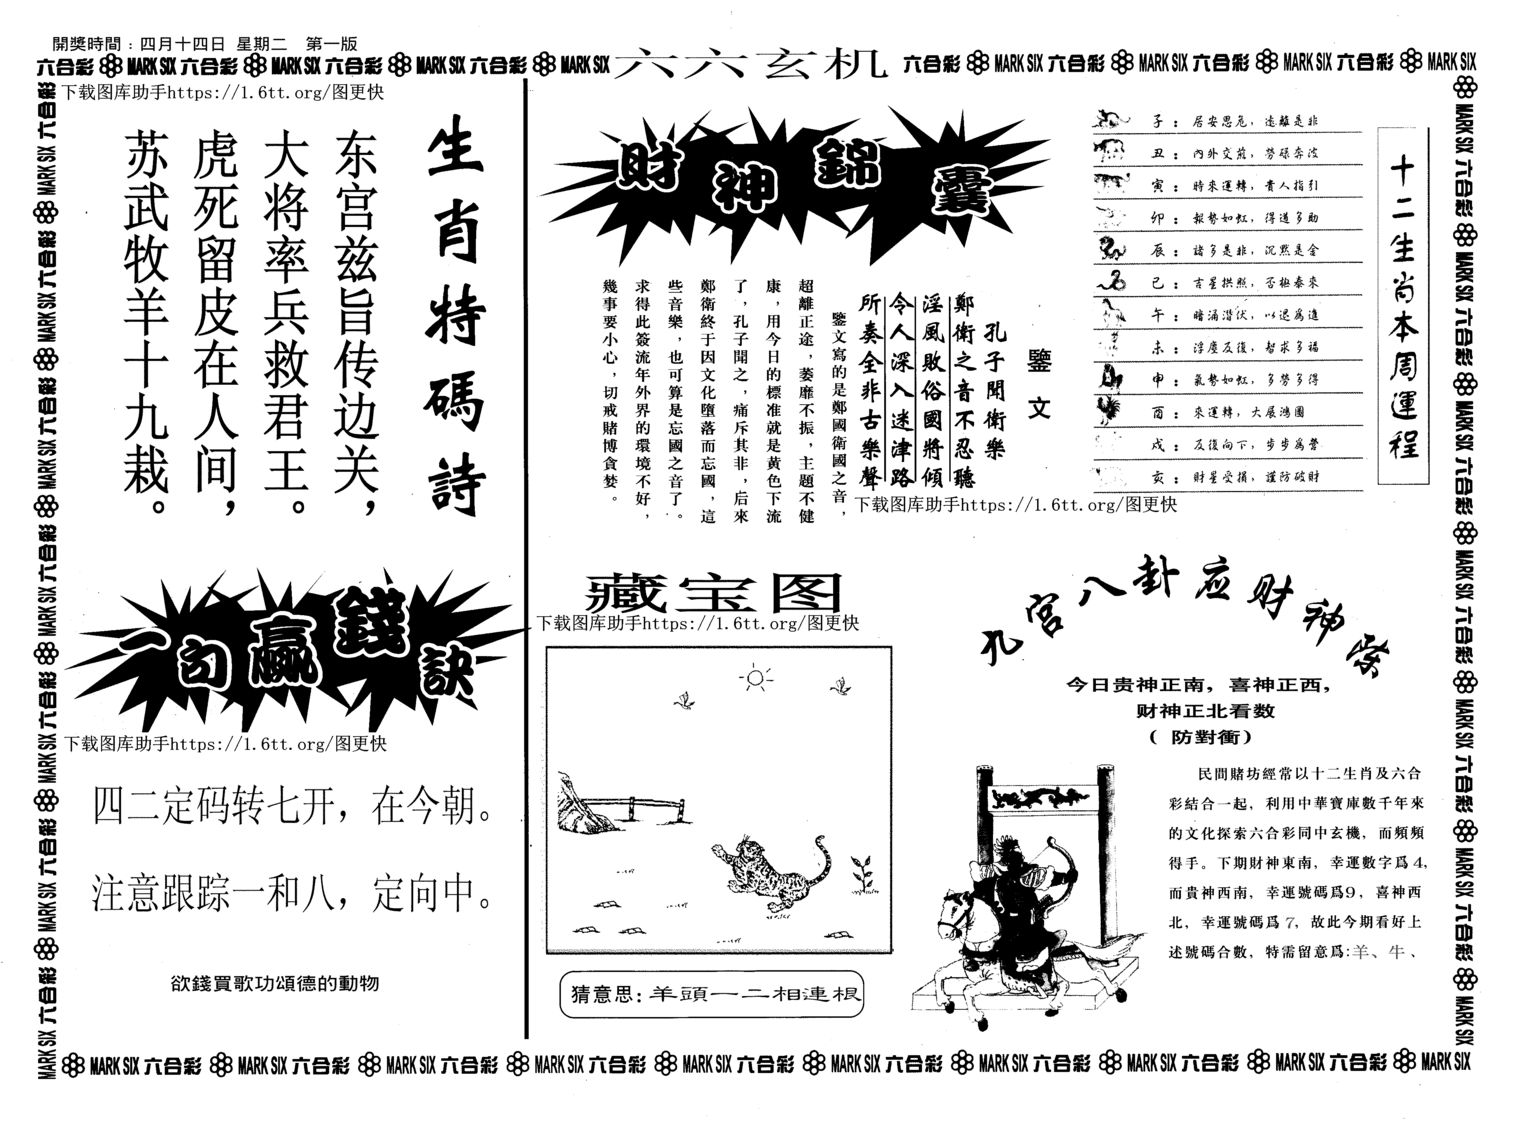 開獎時間：四月十四日 星期二 第一版
六合彩 MARK SIX 六合彩 MARK SIX 六合彩 MARK SIX 六合彩 MARK SIX
六六玄机
六合彩 MARK SIX 六合彩 MARK SIX 六合彩 MARK SIX 六合彩 MARK SIX
下载图库助手https://1.6tt.org/图更快
生肖特碼詩
东宫兹旨传边关，
大将率兵救君王。
虎死留皮在人间，
苏武牧羊十九栽。
一句贏錢訣
下载图库助手https://1.6tt.org/图更快
四二定码转七开，在今朝。
注意跟踪一和八，定向中。
欲錢買歌功頌德的動物
財神錦囊
鑒文
孔子聞衛樂
鄭衛之音不忍聽
淫風敗俗國將傾
令人深入迷津路
所奏全非古樂聲
鑒文寫的是鄭國衛國之音，
超離正途，萎靡不振，主題不健
康，用今日的標准就是黄色下流
了，孔子聞之，痛斥其非，后來
鄭衛終于因文化墮落而忘國，這
些音樂，也可算是忘國之音了。
求得此簽流年外界的環境不好，
幾事要小心，切戒賭博貪婪。
十二生肖本周運程
子：居安思危，遠離是非
丑：内外交煎，勞碌奔波
寅：時來運轉，貴人指引
卯：報勢如虹，得道多助
辰：諸多是非，沉默是金
巳：吉星拱照，否極泰來
午：暗涌潜伏，以退爲進
未：浮塵反復，智求多福
申：氣勢如虹，多勞多得
酉：來運轉，大展鴻圖
戌：反復向下，步步爲營
亥：財星受損，謹防破財
下载图库助手https://1.6tt.org/图更快
藏宝图
下载图库助手https://1.6tt.org/图更快
猜意思：羊頭一二相連根
孔宫八卦应财神
今日贵神正南，喜神正西，
财神正北看数
（防對衝）
民間賭坊經常以十二生肖及六合
彩結合一起，利用中華寶庫數千年來
的文化探索六合彩同中玄機，而頻頻
得手。下期財神東南，幸運數字爲4，
而貴神西南，幸運號碼爲9，喜神西
北，幸運號碼爲7，故此今期看好上
述號碼合數，特需留意爲:羊、牛、
MARK SIX 六合彩 MARK SIX 六合彩 MARK SIX 六合彩 MARK SIX 六合彩 MARK SIX 六合彩 MARK SIX 六合彩 MARK SIX 六合彩 MARK SIX 六合彩 MARK SIX 六合彩 MARK SIX